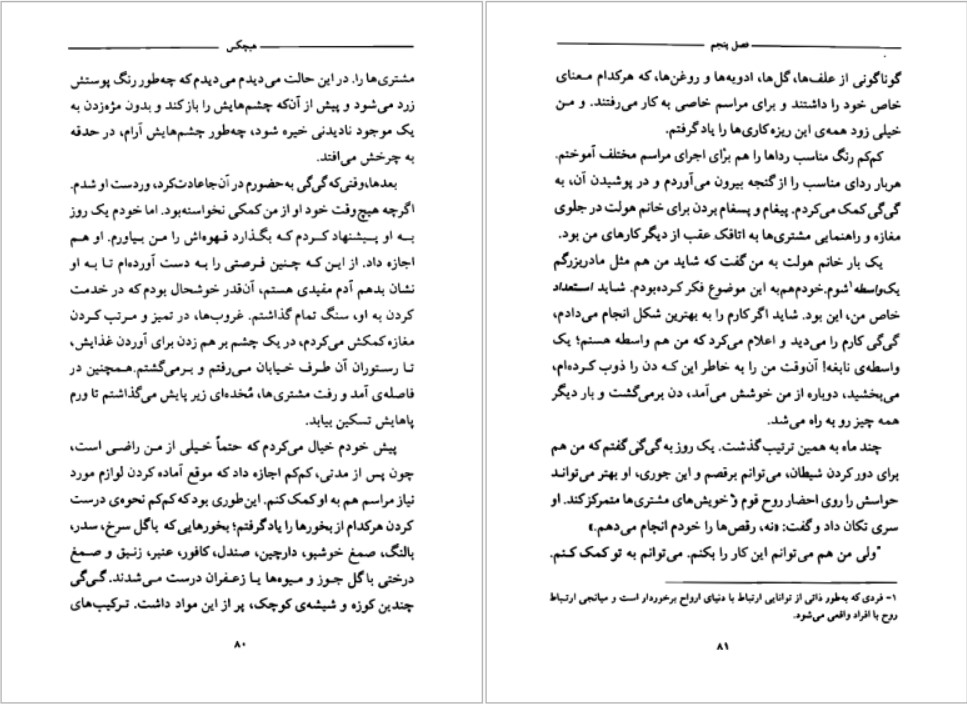 هیچکس
مشتری‌ها را. در این حالت می‌دیدم می‌دیدم که چه‌طور رنگ پوستش
زرد می‌شود و پیش از آن‌که چشم‌هایش را باز کند و بدون مژه‌زدن به
یک موجود نادیدنی خیره شود، چه‌طور چشم‌هایش آرام، در حدقه
به چرخش می‌افتد.
بعدها، وقتی که گی‌گی به حضورم در آن جا عادت کرد، وردست او شدم.
اگرچه هیچ وقت خود او از من کمکی نخواسته‌بود. اما خودم یک روز
به او پیشنهاد کردم که بگذارد قهوه‌اش را من بیاورم. او هم
اجازه داد. از این که چنین فرصتی را به دست آورده‌ام تا به او
نشان بدهم آدم مفیدی هستم، آن‌قدر خوشحال بودم که در خدمت
کردن به او، سنگ تمام گذاشتم. غروب‌ها، در تمیز و مرتب کردن
مغازه کمکش می‌کردم، در یک چشم بر هم زدن برای آوردن غذایش،
تا رستوران آن طرف خیابان می‌رفتم و برمی‌گشتم. همچنین در
فاصله‌ی آمد و رفت مشتری‌ها، مُخده‌ای زیر پایش می‌گذاشتم تا ورم
پاهایش تسکین بیابد.
پیش خودم خیال می‌کردم که حتماً خیلی از من راضی است،
چون پس از مدتی، کم‌کم اجازه داد که موقع آماده کردن لوازم مورد
نیاز مراسم هم به او کمک کنم. این‌طوری بود که کم‌کم نحوه‌ی درست
کردن هرکدام از بخورها را یاد گرفتم؛ بخورهایی که با گل سرخ، سدر،
بالنگ، صمغ خوشبو، دارچین، صندل، کافور، عنبر، زنبق و صمغ
درختی با گل جوز و میوه‌ها یا زعفران درست می‌شدند. گی‌گی
چندین کوزه و شیشه‌ی کوچک، پر از این مواد داشت. ترکیب‌های
۸۰
فصل پنجم
گوناگونی از علف‌ها، گل‌ها، ادویه‌ها و روغن‌ها، که هرکدام معنای
خاص خود را داشتند و برای مراسم خاصی به کار می‌رفتند. و من
خیلی زود همه‌ی این ریزه‌کاری‌ها را یاد گرفتم.
کم‌کم رنگ مناسب رداها را هم برای اجرای مراسم مختلف آموختم.
هربار ردای مناسب را از گنجه بیرون می‌آوردم و در پوشیدن آن، به
گی‌گی کمک می‌کردم. پیغام و پسغام بردن برای خانم هولت در جلوی
مغازه و راهنمایی مشتری‌ها به اتاقک عقب از دیگر کارهای من بود.
یک بار خانم هولت به من گفت که شاید من هم مثل مادربزرگم
یک واسطه۱ شوم. خودم هم به این موضوع فکر کرده‌بودم. شاید استعداد
خاص من، این بود. شاید اگر کارم را به بهترین شکل انجام می‌دادم،
گی‌گی کارم را می‌دید و اعلام می‌کرد که من هم واسطه هستم؛ یک
واسطه‌ی نابغه! آن‌وقت من را به خاطر این که دن را ذوب کرده‌ام،
می‌بخشید، دوباره از من خوشش می‌آمد، دن برمی‌گشت و بار دیگر
همه چیز رو به راه می‌شد.
چند ماه به همین ترتیب گذشت. یک روز به گی‌گی گفتم که من هم
برای دور کردن شیطان، می‌توانم برقصم و این جوری، او بهتر می‌تواند
حواسش را روی احضار روح قوم و خویش‌های مشتری‌ها متمرکز کند. او
سری تکان داد و گفت: «نه، رقص‌ها را خودم انجام می‌دهم.»
"ولی من هم می‌توانم این کار را بکنم. می‌توانم به تو کمک کنم.
۱- فردی که به‌طور ذاتی از توانایی ارتباط با دنیای ارواح برخوردار است و میانجی ارتباط
روح با افراد واقعی می‌شود.
۸۱